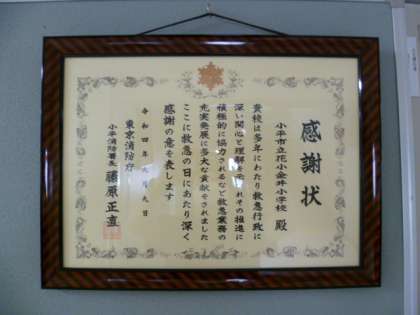 感謝状
小平市立花小金井小学校 殿
貴校は多年にわたり救急行政に
深い関心と理解をよせその推進に
積極的に協力されるなど救急業務の
充実発展に多大な貢献をされました
ここに救急の日にあたり深く
感謝の意を表します
令和四年九月九日
東京消防庁
小平消防署長 藤原正直